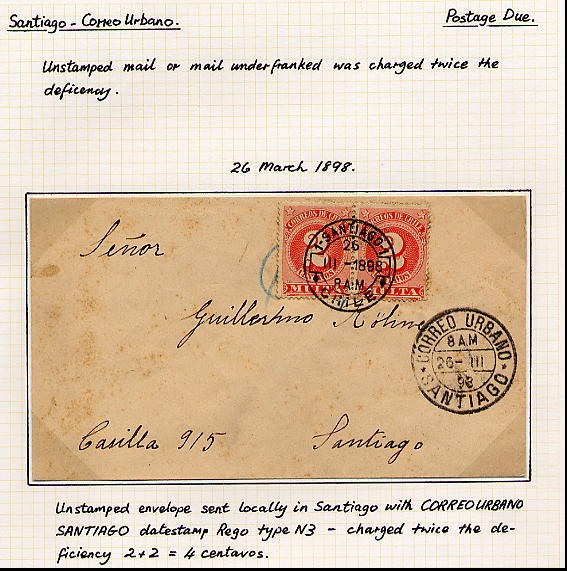 Santiago - Correo Urbano.
Postage Due.
Unstamped mail or mail underfranked was charged twice the
deficency.
26 March 1898.
CORREOS DE CHILE CORREOS DE CHILE
2 2
CENTAVOS CENTAVOS
MULTA MULTA
1·SANTIAGO·1
26
III -1898
8 A.M
CHILE
Señor
Guillermo
CORREO URBANO
8 AM
26- III
98
SANTIAGO
Casilla 915 Santiago
Unstamped envelope sent locally in Santiago with CORREO URBANO
SANTIAGO datestamp Rego type N3 - charged twice the de-
ficiency 2+2 = 4 centavos.